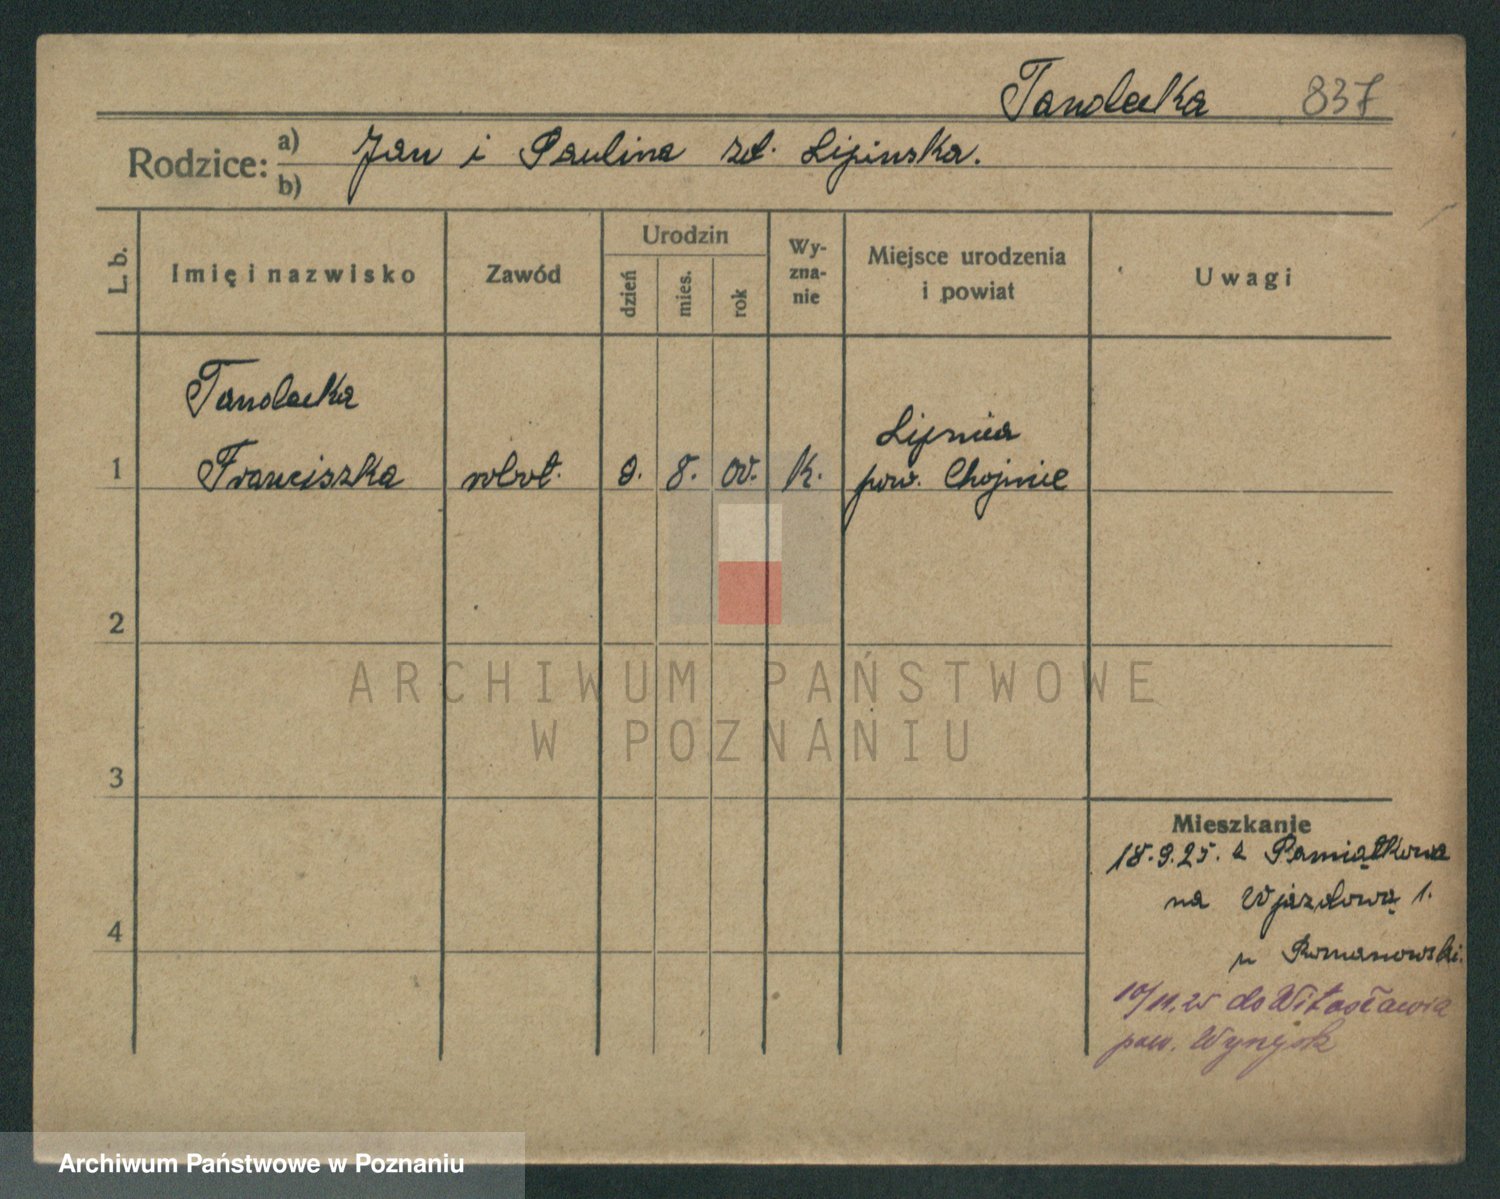 Tandecka 837
Rodzice: a) Jan i Paulina zd. Lipinska.
b)
L. b. Imię i nazwisko Zawód Urodzin dzień mies. rok Wyznanie Miejsce urodzenia i powiat Uwagi
Tandecka
1 Franciszka robot. 9. 8. 00. k.
Lipnica
pow. Chojnice
2
3
4
Mieszkanie
18.9.25. z Pamiątkowa
na Wjazdową 1.
u Romanowski.
10/11.25 do Witosławia
pow. Wyrzysk
ARCHIWUM PAŃSTWOWE
W POZNANIU
Archiwum Państwowe w Poznaniu